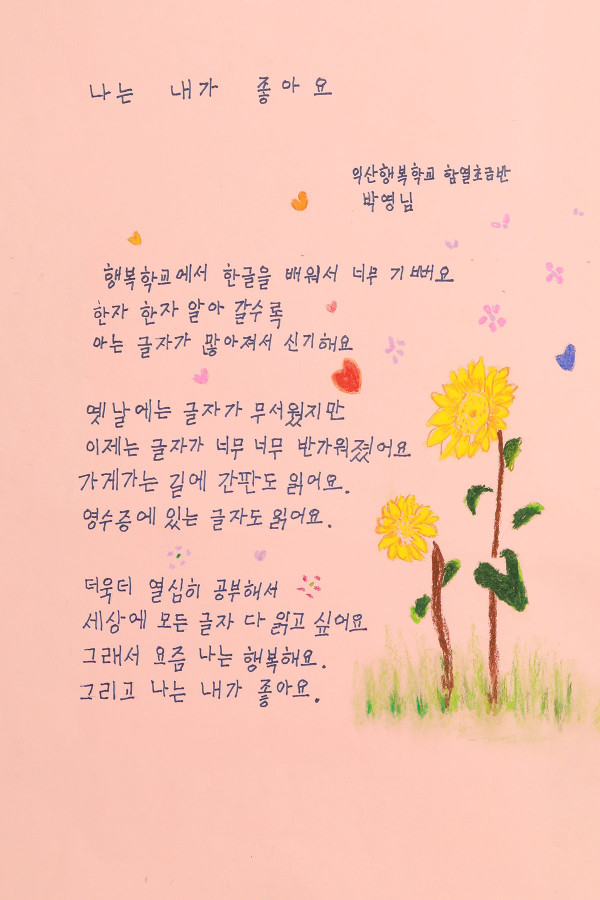 나는 내가 좋아요
익산행복학교 함열초급반
박영님
행복학교에서 한글을 배워서 너무 기뻐요
한자 한자 알아 갈수록
아는 글자가 많아져서 신기해요
옛날에는 글자가 무서웠지만
이제는 글자가 너무 너무 반가워졌어요
가게가는 길에 간판도 읽어요.
영수증에 있는 글자도 읽어요.
더욱더 열심히 공부해서
세상에 모든 글자 다 읽고 싶어요
그래서 요즘 나는 행복해요.
그리고 나는 내가 좋아요.